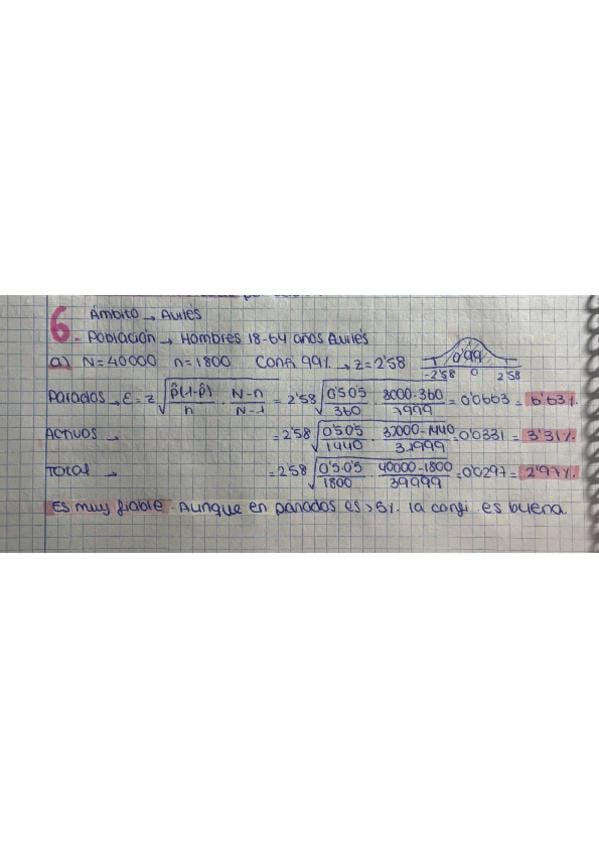 6. Ámbito → Avilés
- Población → Hombres 18-64 años Avilés
a) N=40000 n=1800 Conf. 99% → z=2'58 0'99
-2'58 0 2'58
Parados → ε = z √( p̂(1-p̂)/n · N-n/N-1 ) = 2'58 √( 0'5·0'5/360 · 8000-360/7999 ) = 0'0663 = 6'63%.
Activos → = 2'58 √( 0'5·0'5/1440 · 32000-1440/31999 ) = 0'0331 = 3'31%.
Total → = 2'58 √( 0'5·0'5/1800 · 40000-1800/39999 ) = 0'0297 = 2'97%.
Es muy fiable. Aunque en parados es >5% la confi. es buena.